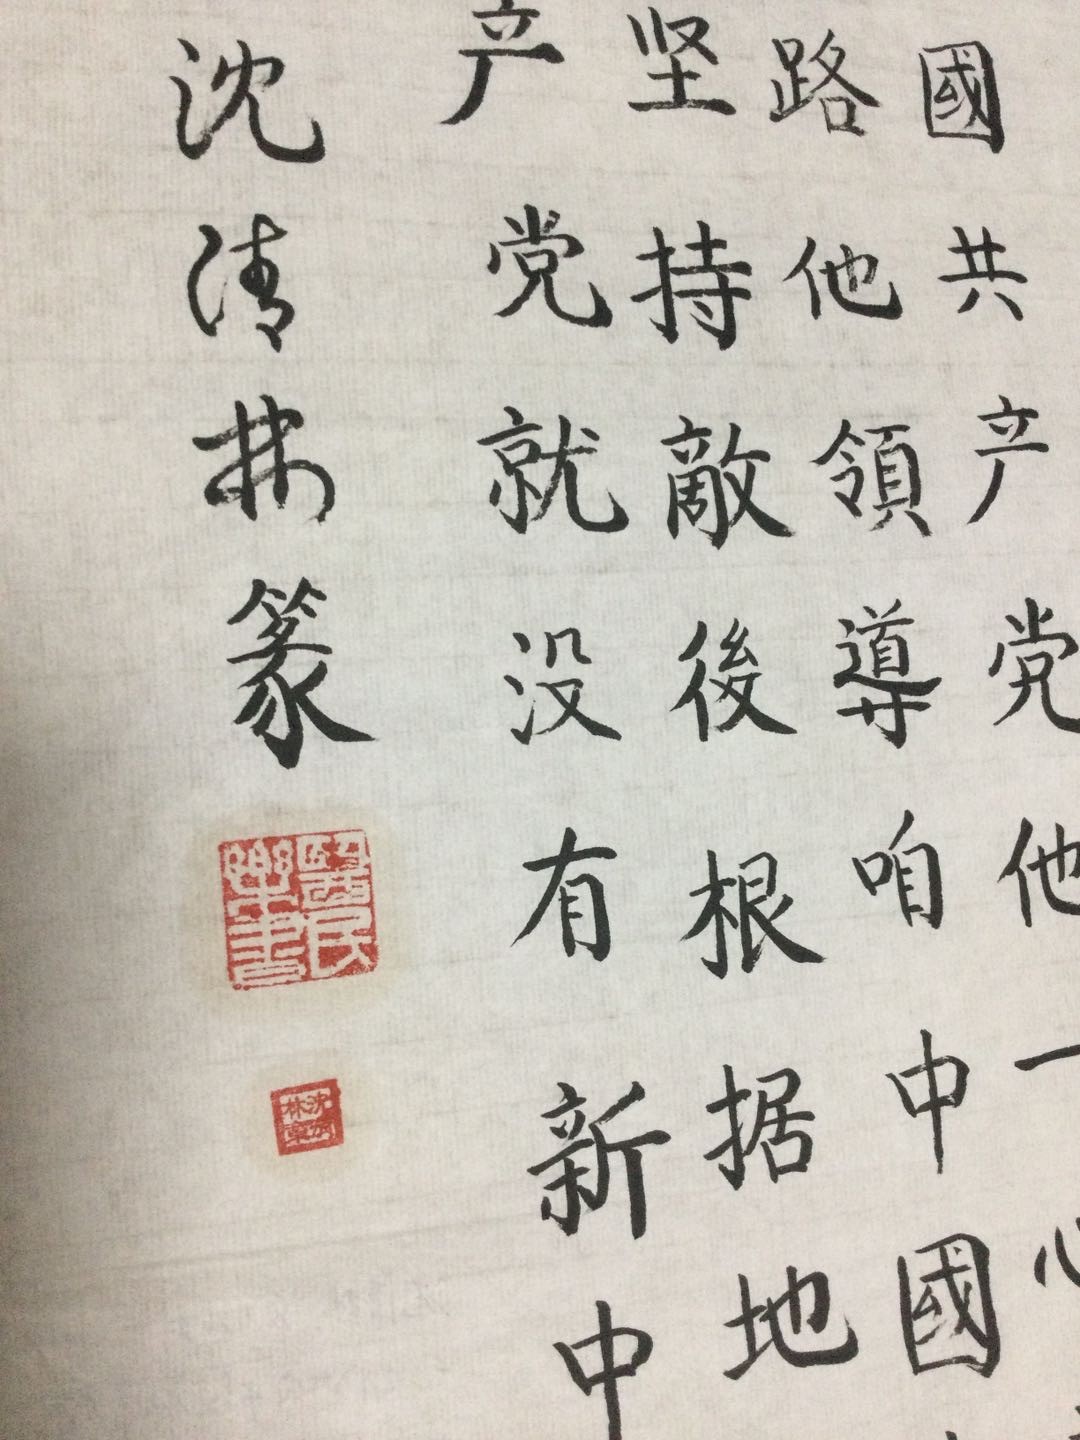 國共产党他一心
路他領導咱中國
坚持敵後根据地
产党就没有新中
沈清林篆